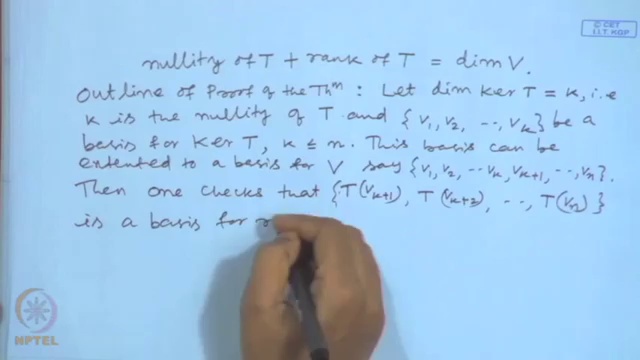 © CET
I.I.T. KGP
nullity of T + rank of T = dim V.
Outline of Proof of the Thᵐ : Let dim Ker T = k, i.e
k is the nullity of T and {v₁, v₂, ..., vₖ} be a
basis for Ker T, k ≤ n. This basis can be
extented to a basis for V say {v₁, v₂, ... vₖ, vₖ₊₁, ..., vₙ}.
Then one checks that {T(vₖ₊₁), T(vₖ₊₂), ..., T(vₙ)}
is a basis for
NPTEL